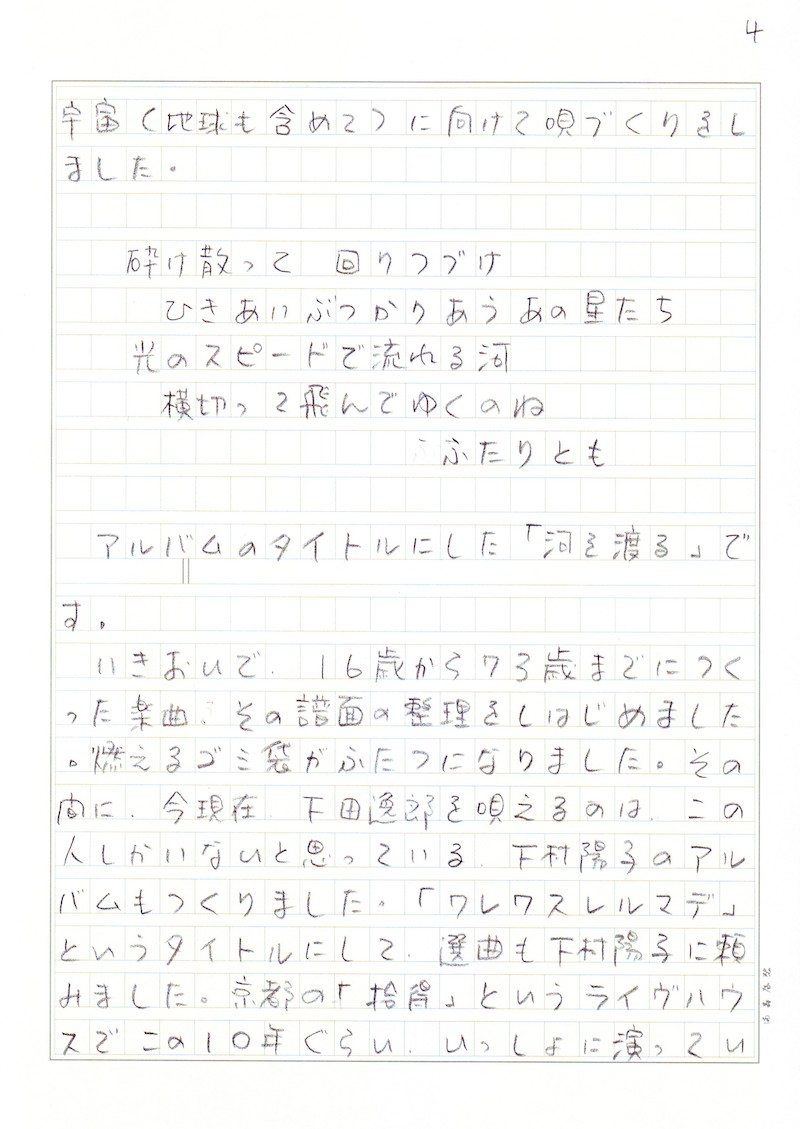 4
宇宙(地球も含めて)に向けて唄づくりをし
ました。
砕け散って 回りつづけ
ひきあいぶつかりあう あの星たち
光のスピードで流れる河
横切って飛んでゆくのね
ふたりとも
アルバムのタイトルにした「河を渡る」で
す。
いきおいで、16歳から73歳までにつく
った楽曲、その譜面の整理をしはじめました
。燃えるゴミ袋がふたつになりました。その
間に、今現在、下田逸郎を唄えるのは、この
人しかいないと思っている、下村陽子のアル
バムもつくりました。「ワレワスレルマデ」
というタイトルにして、選曲も下村陽子に頼
みました。京都の「拾得」というライヴハウ
スでこの10年ぐらい、いっしょに演ってい